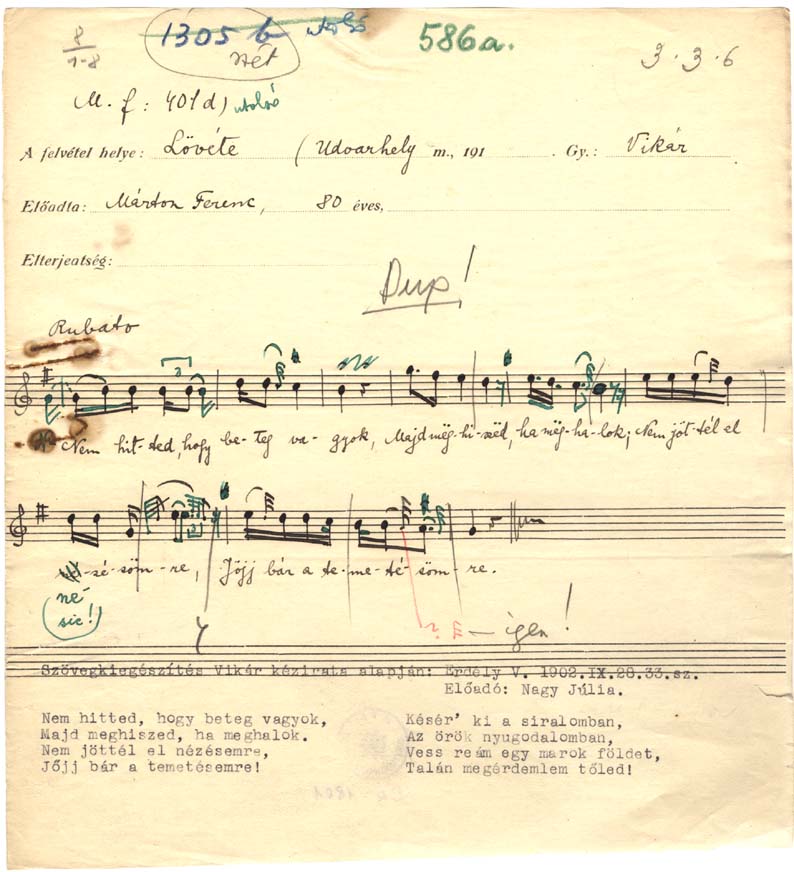 8/1-8 1305 b utolsó 586a. 3·3·6
vét
M. f: 401d) utolsó
A felvétel helye: Lövéte (Udvarhely m., 191 . Gy.: Vikár
Előadta: Márton Ferenc, 80 éves,
Elterjeatség:
Dup!
Rubato
3
Nem hit-ted, hogy be-teg va-gyok, Majd mëg-hi-szëd, ha mëg-ha-lok; Nem jöt-tél el
né-zé-söm-re, Jőjj bár a te-me-té-söm-re.
sic!)
? — igen!
Szövegkiegészítés Vikár kézirata alapján: Erdély V. 1902.IX.28.33.sz.
Előadó: Nagy Júlia.
Nem hitted, hogy beteg vagyok, Késér' ki a siralomban,
Majd meghiszed, ha meghalok. Az örök nyugodalomban,
Nem jöttél el nézésemre, Vess reám egy marok földet,
Jőjj bár a temetésemre! Talán megérdemlem tőled!